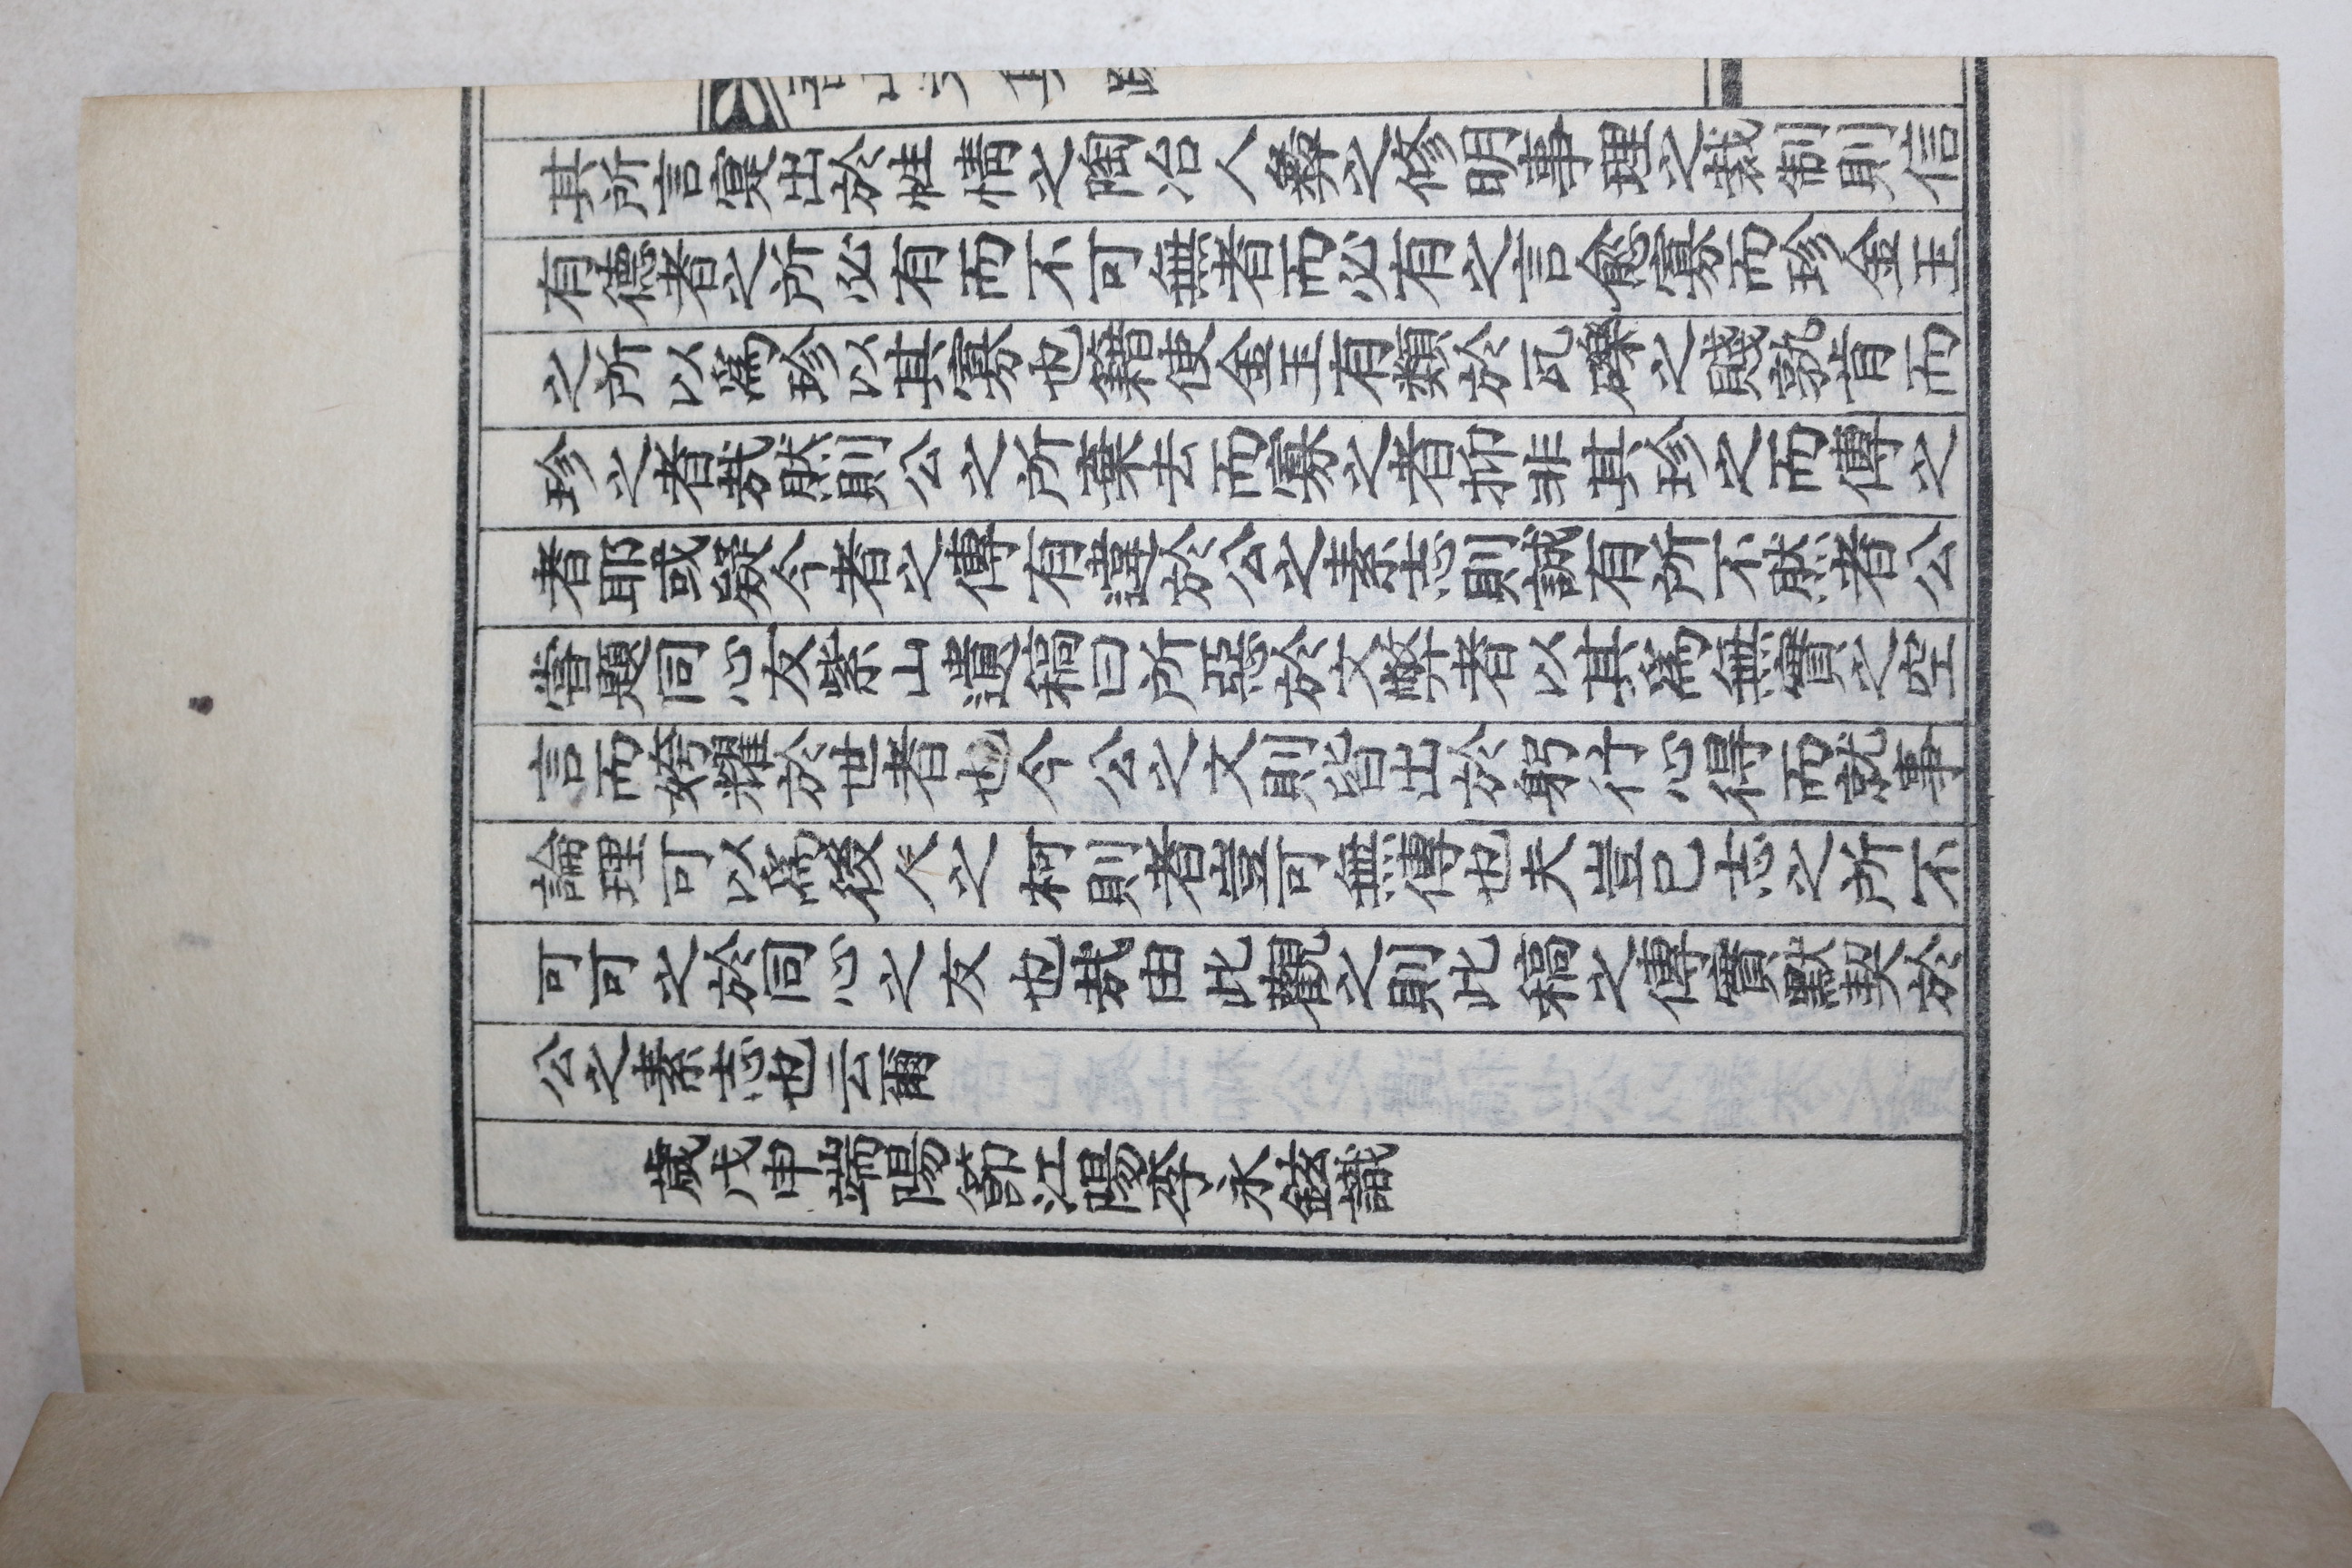 其所言寔出於性情之陶冶人彝之修明事理之裁制則信
有德者之所必有而不可無者而必有之言愈寡而珍金玉
之所以爲珍以其寡也籍使金玉有類於瓦礫之賤孰肯而
珍之者哉然則公之所棄去而寡之者抑非其珍之而傳之
者耶或疑今者之傳有違於公之素志則誠有所不然者公
嘗題同心友紫山遺稿曰所惡於文弊者以其爲無實之空
言而姱耀於世者也今公之文則皆出於躬行心得而就事
論理可以爲後人之柯則者豈可無傳也夫豈已志之所不
可可之於同心之友也哉由此觀之則此稿之傳實默契於
公之素志也云爾
歲戊申端陽節江陽李永鉉識